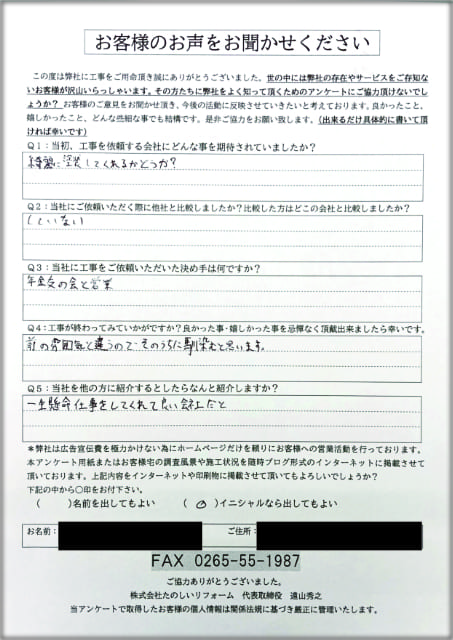 お客様のお声をお聞かせください
この度は弊社に工事をご用命頂き誠にありがとうございました。世の中には弊社の存在やサービスをご存知な
いお客様が沢山いらっしゃいます。その方たちに弊社をよく知って頂くためのアンケートにご協力頂けないでし
ょうか？ お客様のご意見をお聞かせ頂き、今後の活動に反映させていきたいと考えております。良かったこと、
嬉しかったこと、どんな些細な事でも結構です。是非ご協力をお願い致します。（出来るだけ具体的に書いて頂
ければ幸いです）
Ｑ１：当初、工事を依頼する会社にどんな事を期待されていましたか？
綺麗に塗装してくれるかどうか?
Ｑ２：当社にご依頼いただく際に他社と比較しましたか？比較した方はどこの会社と比較しましたか？
していない
Ｑ３：当社に工事をご依頼いただいた決め手は何ですか？
年金友の会と営業
Ｑ４：工事が終わってみていかがですか？良かった事・嬉しかった事を忌憚なく頂戴出来ましたら幸いです。
前の雰囲気と違うので、そのうちに馴染むと思います。
Ｑ５：当社を他の方に紹介するとしたらなんと紹介しますか？
一生懸命仕事をしてくれて良い会社だと
＊弊社は広告宣伝費を極力かけない為にホームページだけを頼りにお客様への営業活動を行っております。
本アンケート用紙またはお客様宅の調査風景や施工状況を随時ブログ形式のインターネットに掲載させて
頂いております。上記内容をインターネットや印刷物に掲載させて頂いてもよろしいでしょうか？
下記の中から〇印をお付下さい。
（　　）名前を出してもよい　　（ 〇 ）イニシャルなら出してもよい
お名前：　　ご住所：
FAX 0265-55-1987
ご協力ありがとうございました。
株式会社たのしいリフォーム　代表取締役　遠山秀之
当アンケートで取得したお客様の個人情報は関係法規に基づき厳正に管理いたします。